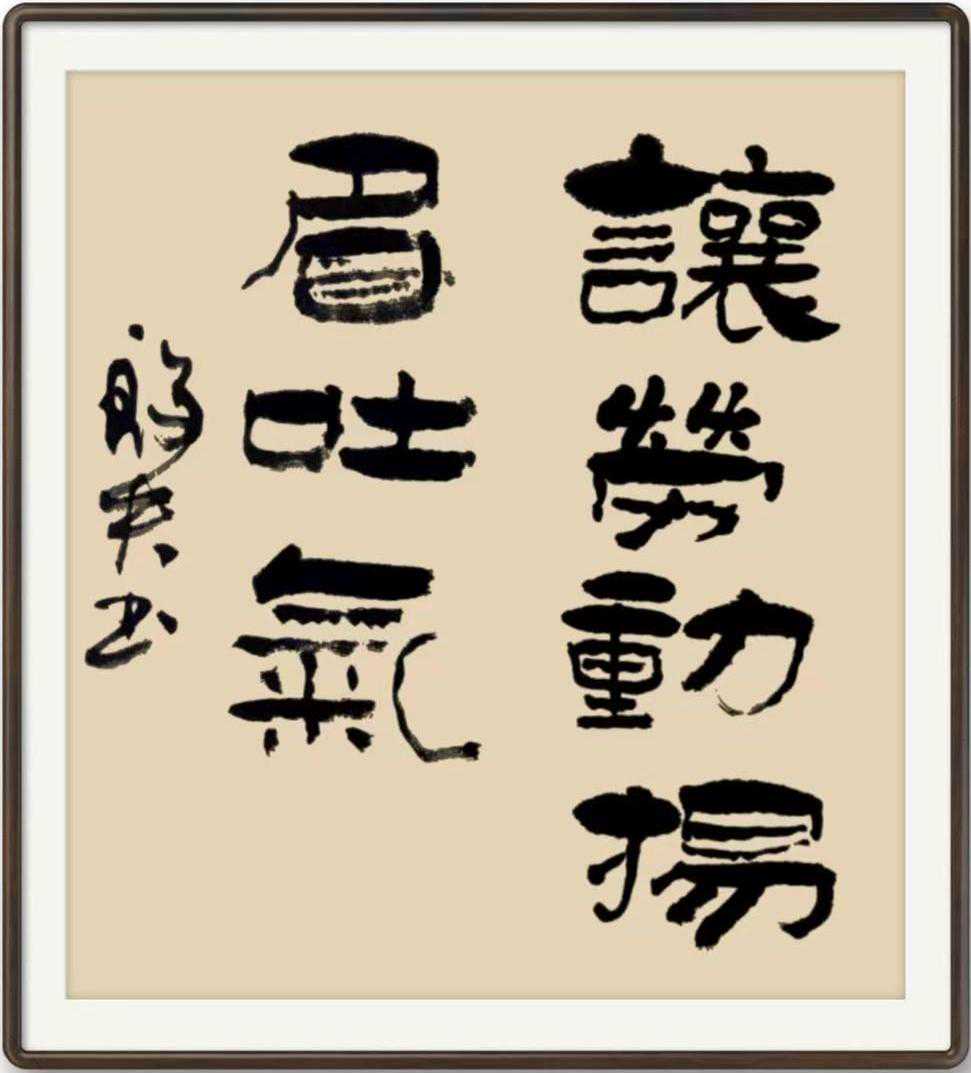 讓勞動揚
眉吐氣
夫书